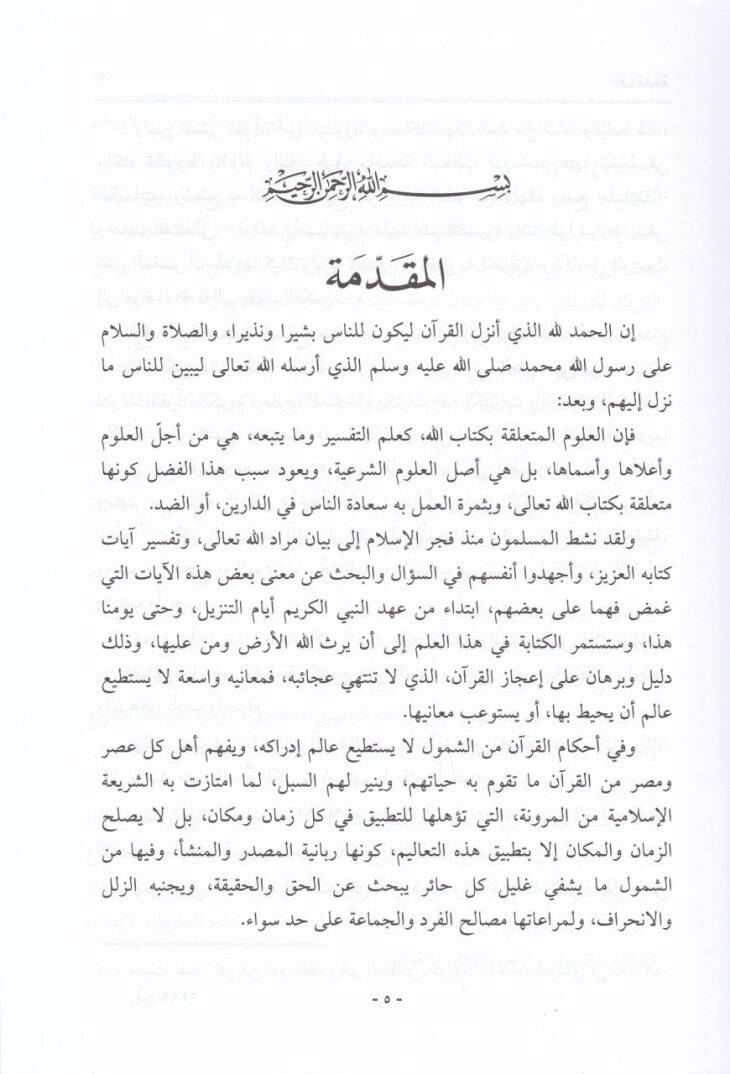 بسم الله الرحمن الرحيم
المقدّمة
إن الحمد لله الذي أنزل القرآن ليكون للناس بشيرا ونذيرا، والصلاة والسلام
على رسول الله محمد صلى الله عليه وسلم الذي أرسله الله تعالى ليبين للناس ما
نزل إليهم، وبعد:
فإن العلوم المتعلقة بكتاب الله، كعلم التفسير وما يتبعه، هي من أجلّ العلوم
وأعلاها وأسماها، بل هي أصل العلوم الشرعية، ويعود سبب هذا الفضل كونها
متعلقة بكتاب الله تعالى، وبثمرة العمل به سعادة الناس في الدارين، أو الضد.
ولقد نشط المسلمون منذ فجر الإسلام إلى بيان مراد الله تعالى، وتفسير آيات
كتابه العزيز، وأجهدوا أنفسهم في السؤال والبحث عن معنى بعض هذه الآيات التي
غمض فهما على بعضهم، ابتداء من عهد النبي الكريم أيام التنزيل، وحتى يومنا
هذا، وستستمر الكتابة في هذا العلم إلى أن يرث الله الأرض ومن عليها، وذلك
دليل وبرهان على إعجاز القرآن، الذي لا تنتهي عجائبه، فمعانيه واسعة لا يستطيع
عالم أن يحيط بها، أو يستوعب معانيها.
وفي أحكام القرآن من الشمول لا يستطيع عالم إدراكه، ويفهم أهل كل عصر
ومصر من القرآن ما تقوم به حياتهم، وينير لهم السبل، لما امتازت به الشريعة
الإسلامية من المرونة، التي تؤهلها للتطبيق في كل زمان ومكان، بل لا يصلح
الزمان والمكان إلا بتطبيق هذه التعاليم، كونها ربانية المصدر والمنشأ، وفيها من
الشمول ما يشفي غليل كل حائر يبحث عن الحق والحقيقة، ويجنبه الزلل
والانحراف، ولمراعاتها مصالح الفرد والجماعة على حد سواء.
- ٥ -